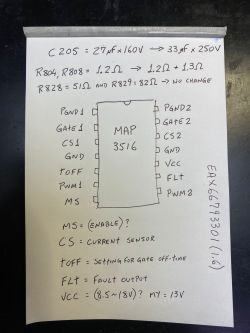 C205 = 27µF x 160V → 33µF x 250V
R804, R808 = 1.2Ω → 1.2Ω + 1.3Ω
R828 = 51Ω AND R829 = 82Ω → NO CHANGE
PGND1 PGND2
GATE1 GATE2
CS1 CS2
GND GND
tOFF VCC
PWM1 FLt
MS PWM2
MAP
3516
MS = (ENABLE)?
CS = CURRENT SENSOR
tOFF = SETTING FOR GATE OFF-TIME
FLt = FAULT OUTPUT
VCC = (8.5~18V)? MY = 13V
EAX66793301(1.6)